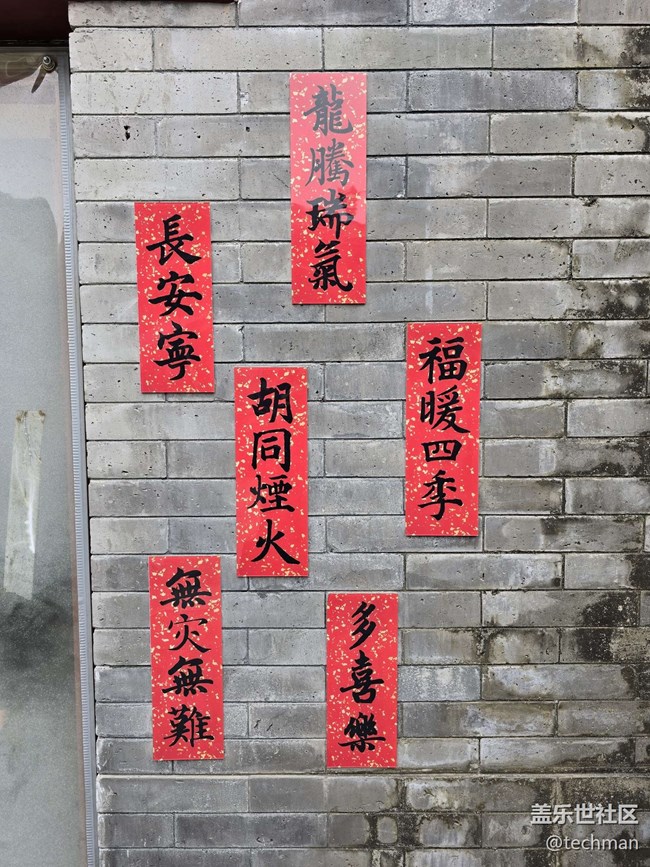 龍騰瑞氣
長安寧
福暖四季
胡同煙火
無灾無難
多喜樂
盖乐世社区
@techman